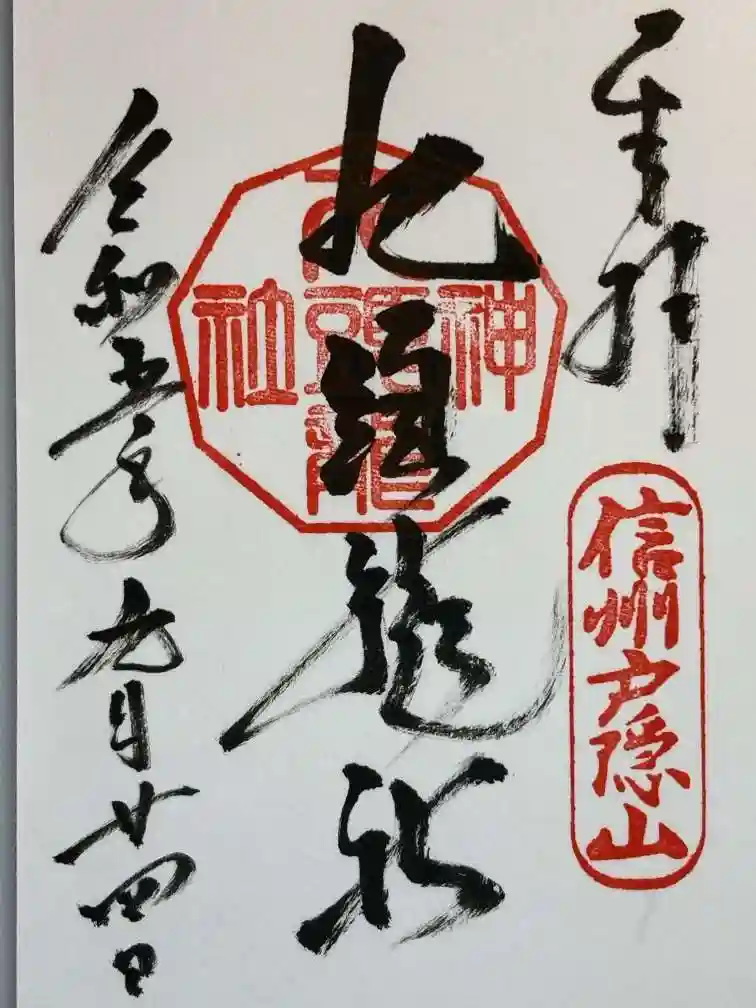 奉拝
信州戸隠山
九頭龍社
神
九頭龍
社
令和五年九月廿四日